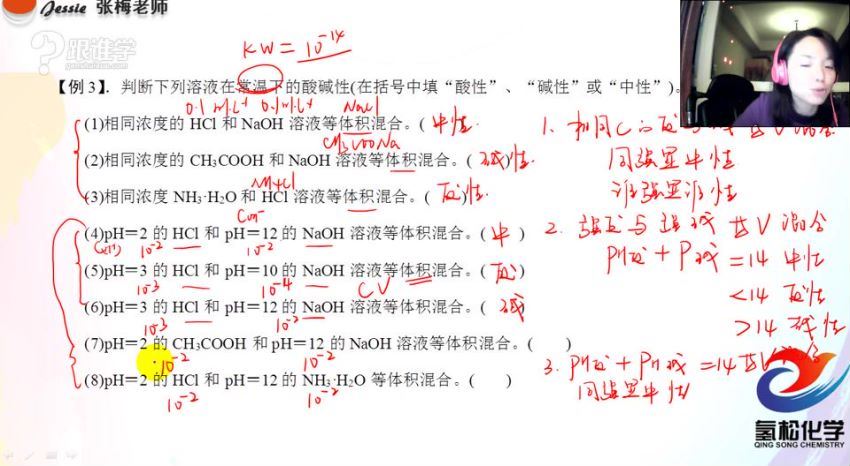 Jessie 张梅老师
跟谁学
KW = 10⁻¹⁴
【例 3】. 判断下列溶液在常温下的酸碱性(在括号中填“酸性”、“碱性”或“中性”)。
0.1 0.1 NaCl
(1)相同浓度的 HCl 和 NaOH 溶液等体积混合。( 中性
CH₃COONa
(2)相同浓度的 CH₃COOH 和 NaOH 溶液等体积混合。( 碱)性
NH₄Cl
(3)相同浓度 NH₃·H₂O 和 HCl 溶液等体积混合。( )
(4)pH=2 的 HCl 和 pH=12 的 NaOH 溶液等体积混合。( 中 )
10⁻² 10⁻²
(5)pH=3 的 HCl 和 pH=10 的 NaOH 溶液等体积混合。( )
10⁻³ 10⁻⁴ CV
(6)pH=3 的 HCl 和 pH=12 的 NaOH 溶液等体积混合。( 碱
10⁻³ 10⁻²
(7)pH=2 的 CH₃COOH 和 pH=12 的 NaOH 溶液等体积混合。( )
10⁻² 10⁻²
(8)pH=2 的 HCl 和 pH=12 的 NH₃·H₂O 等体积混合。( )
10⁻² 10⁻²
1. 相同C
同强显中性
谁强显谁性
2. 强 与强碱 V 混合
= 14 中性
< 14
> 14 碱性
3. = 14
同强显中性
氢松化学
QING SONG CHEMISTRY